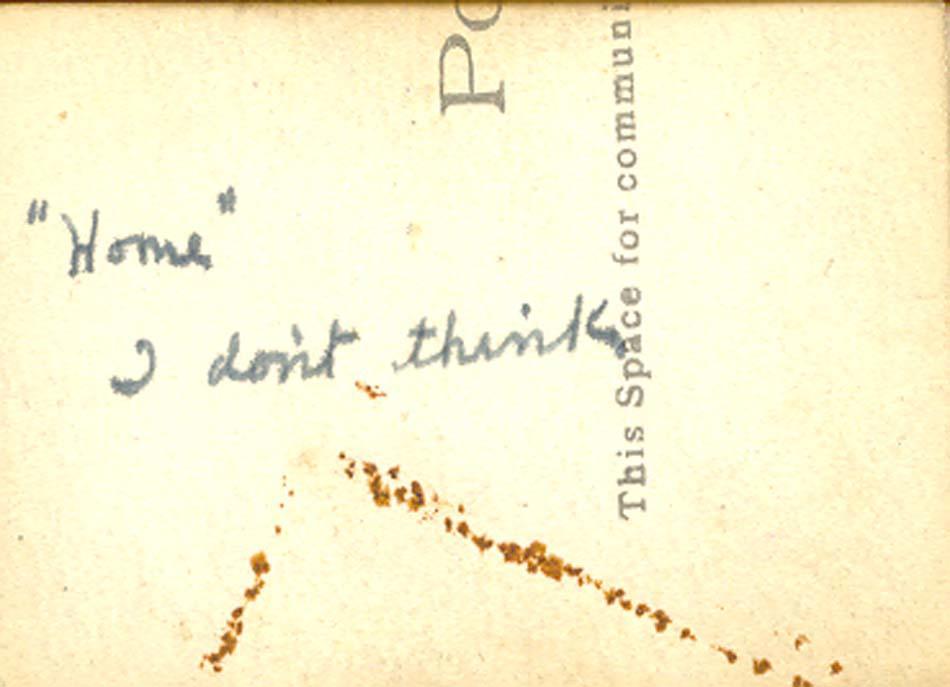 "Home"
I don't think
Po
This Space for communi